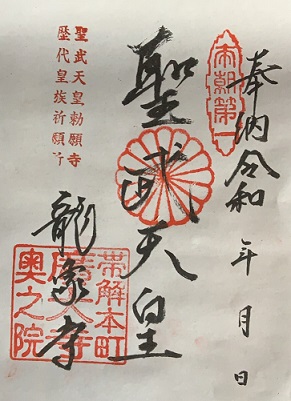 奉納令和 年 月 日
本朝第一
聖武天皇
聖武天皇勅願寺
歴代皇族祈願所
龍象寺
帯解本町
廣大寺
奥之院